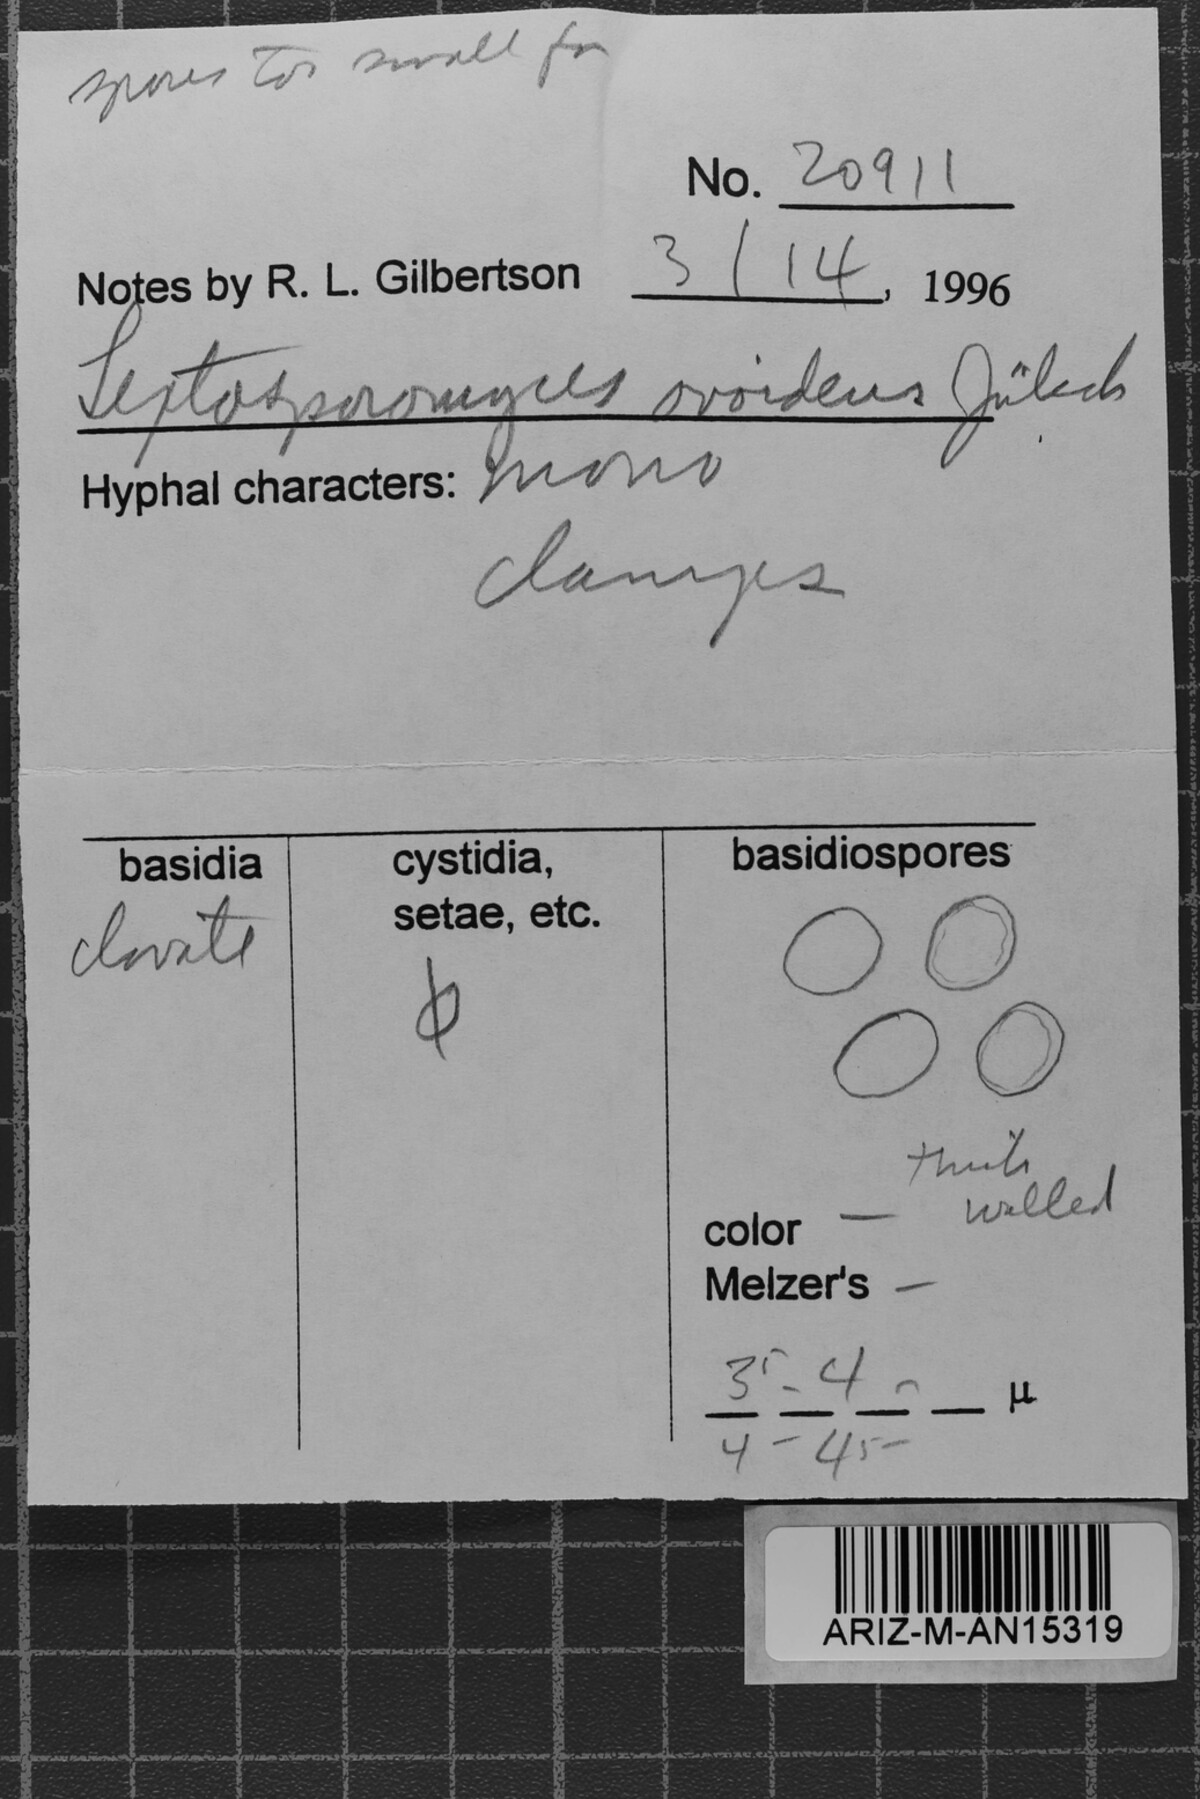 spores too small for
No. 20911
Notes by R. L. Gilbertson 3/14, 1996
Leptosporomyces ovoideus Jülich
Hyphal characters: mono
clamps
basidia
clavate
cystidia,
setae, etc.
ϕ
basidiospores
thick
walled
color —
Melzer's —
35 - 4 μ
4 - 45 -
ARIZ-M-AN15319